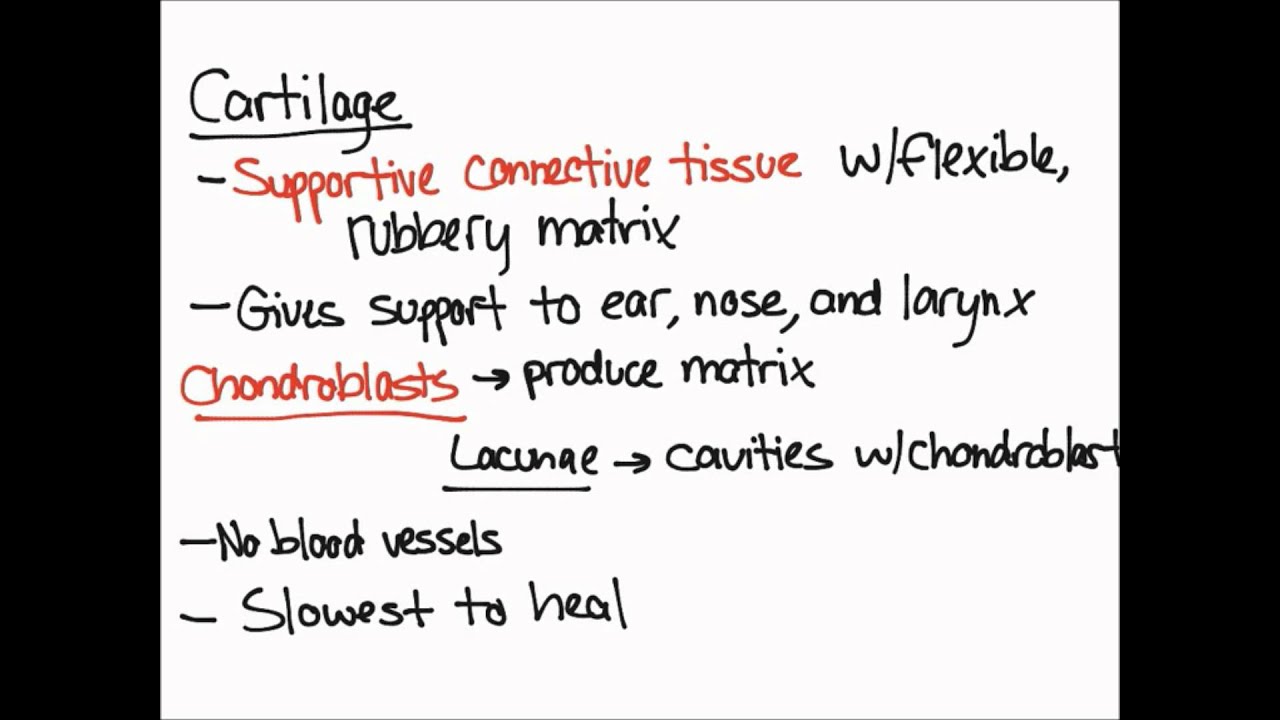 Cartilage
- Supportive connective tissue w/flexible,
rubbery matrix
- Gives support to ear, nose, and larynx
Chondroblasts → produce matrix
Lacunae → cavities w/chondroblast
- No blood vessels
- Slowest to heal